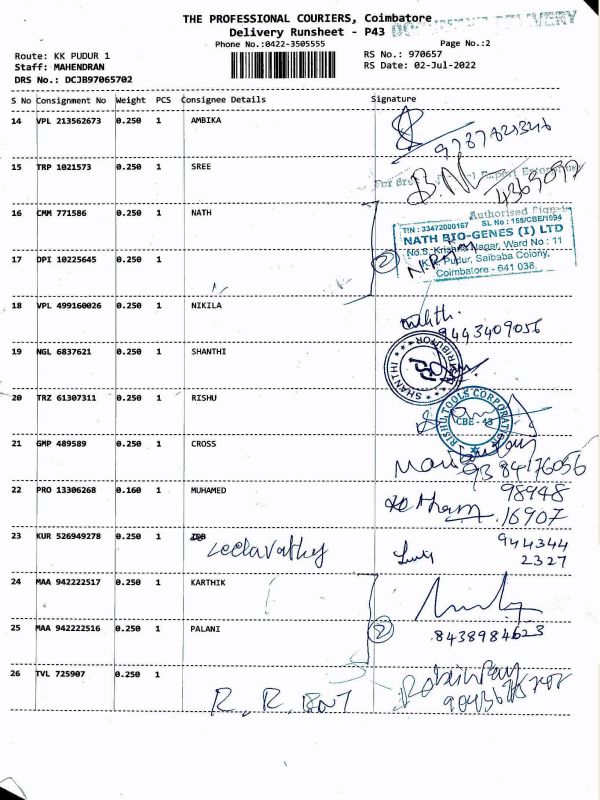 THE PROFESSIONAL COURIERS, Coimbatore
Delivery Runsheet - P43
DELIVERY
Phone No.:0422-3505555
Page No.:2
Route: KK PUDUR 1
RS No.: 970657
Staff: MAHENDRAN
RS Date: 02-Jul-2022
DRS No.: DCJB97065702
S No Consignment No Weight PCS Consignee Details Signature
14 VPL 213562673 0.250 1 AMBIKA
9787821346
15 TRP 1021573 0.250 1 SREE
4369097
Authorised
16 CMM 771586 0.250 1 NATH
TIN : 33472000167 SL No : 155/CBE/1994
NATH BIO-GENES (I) LTD
No.5, Krishna Nagar, Ward No : 11
K.K. Pudur, Saibaba Colony,
Coimbatore - 641 038.
17 DPI 10225645 0.250 1
2
18 VPL 499160026 0.250 1 NIKILA
9443409056
19 NGL 6837621 0.250 1 SHANTHI
SHANTHI DISTRIBUTOR
20 TRZ 61307311 0.250 1 RISHU
RISHU TOOLS CORPORATION
CBE - 43
21 GMP 489589 0.250 1 CROSS
9384176056
22 PRO 13306268 0.160 1 MUHAMED
98948
16907
23 KUR 526949278 0.250 1
Leelavathy
944344
2327
24 MAA 942222517 0.250 1 KARTHIK
25 MAA 942222516 0.250 1 PALANI
2
8438984623
26 TVL 725907 0.250 1
R. R.